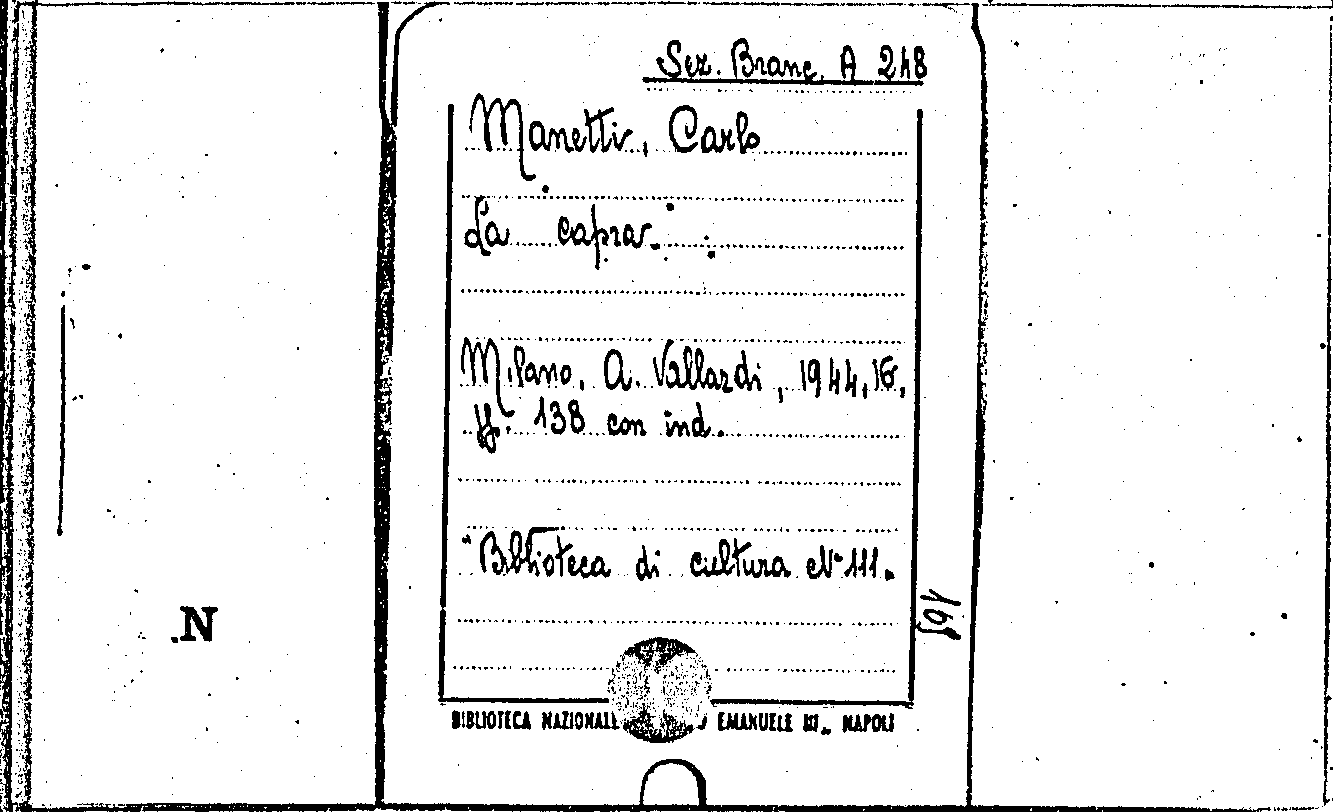 Sez. Branc. A 248
Manetti, Carlo
La capra.
Milano, A. Vallardi, 1944, 16,
pp. 138 con ind.
"Biblioteca di cultura N° 111.
N
BIBLIOTECA NAZIONALE EMANUELE III„ NAPOLI